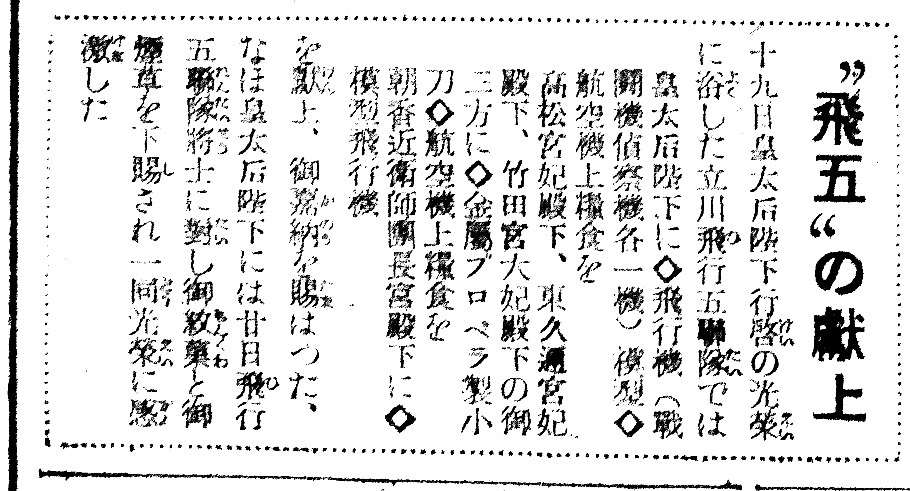 ”飛五“の獻上
十九日皇太后陛下行啓の光榮
に浴した立川飛行五聯隊では
皇太后陛下に◇飛行機（戰
鬪機偵察機各一機）模型◇
航空機上糧食を
高松宮妃殿下、東久邇宮妃
殿下、竹田宮大妃殿下の御
三方に◇金屬プロペラ製小
刀◇航空機上糧食を
朝香近衞師團長宮殿下に◇
模型飛行機
を獻上、御嘉納を賜はつた、
なほ皇太后陛下には廿日飛行
五聯隊將士に對し御紋菓と御
煙草を下賜され一同光榮に感
激した